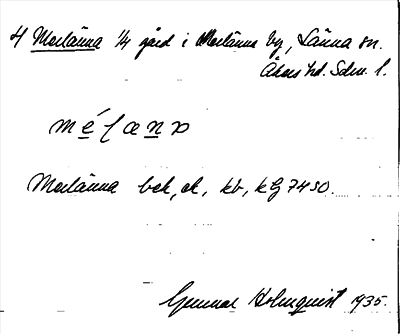 4 Merlänna 1/4 gård i Merlänna by, Länna sn.
Åkers hd. Sdm. l.
Merlänna bek, ek, kb, kg 7450.
Gunnar Holmquist 1935.